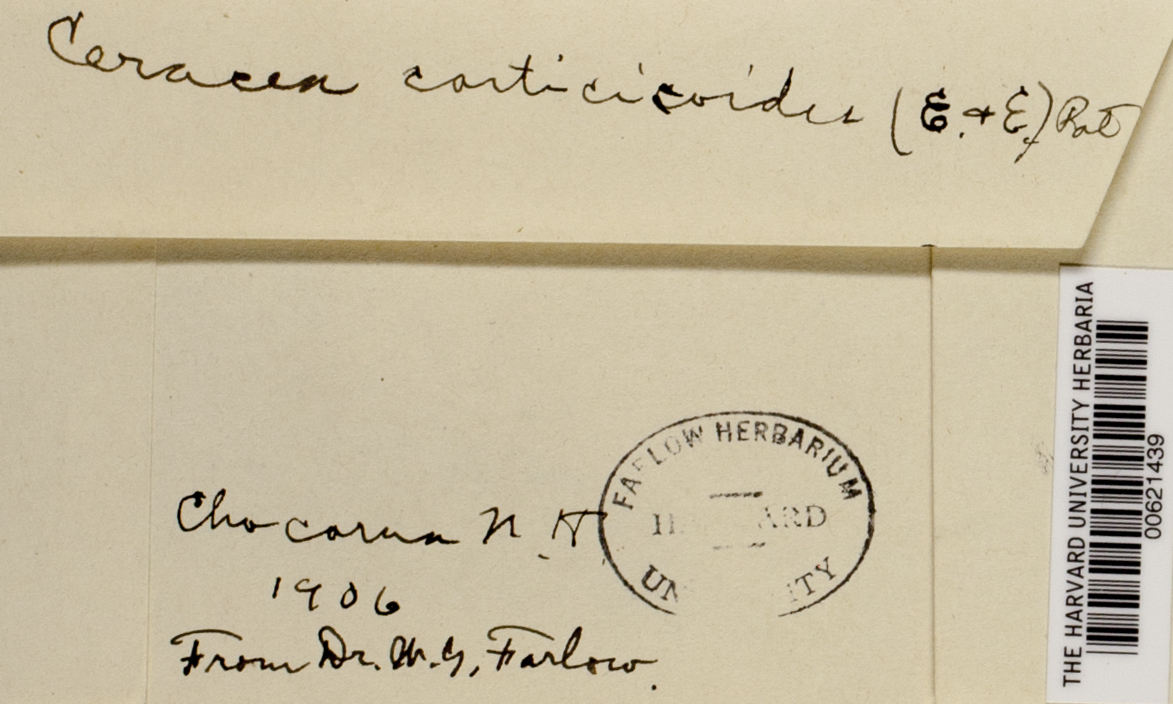 Ceracea corticicoides (E. & E.) Pat
Chocorua N. H
1906
From Dr. W. G. Farlow.
FARLOW HERBARIUM
HARVARD
UNIVERSITY
THE HARVARD UNIVERSITY HERBARIA
00621439